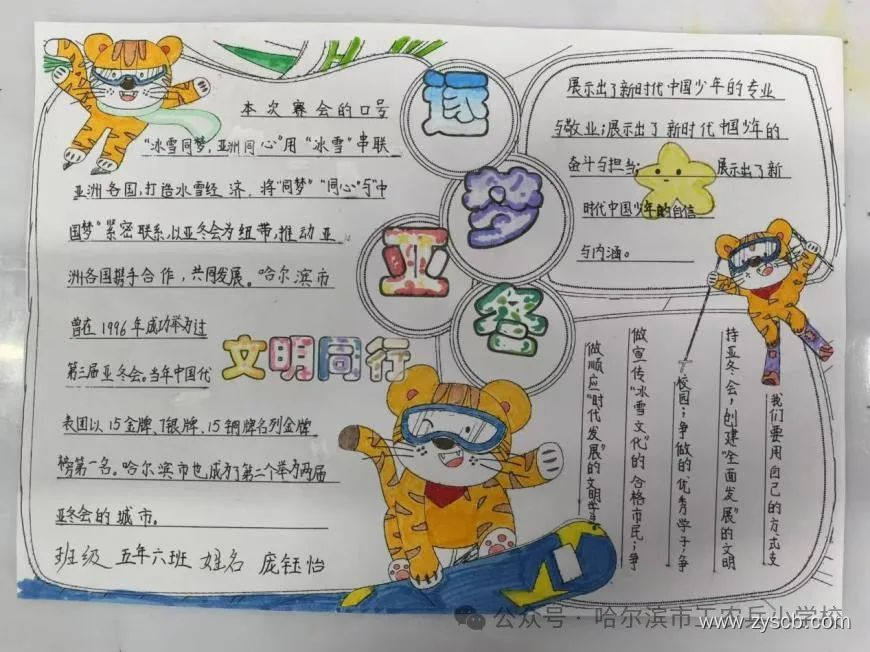 逐
梦
亚
冬
文明同行
本次赛会的口号
“冰雪同梦,亚洲同心”用“冰雪”串联
亚洲各国,打造冰雪经济,将“同梦”“同心”与“中
国梦”紧密联系,以亚冬会为纽带,推动亚
洲各国携手合作,共同发展。哈尔滨市
曾在1996年成功举办过
第三届亚冬会。当年中国代
表团以15金牌、7银牌、15铜牌名列金牌
榜第一名。哈尔滨市也成为了第二个举办两届
亚冬会的城市。
班级 五年六班 姓名 庞钰怡
展示出了新时代中国少年的专业
与敬业;展示出了新时代中国少年的
奋斗与担当;展示出了新
时代中国少年的自信
与内涵。
我们要用自己的方式支
持亚冬会,创建“全面发展”的文明
校园;争做的优秀学子;争
做宣传“冰雪文化”的合格市民;争
做顺应“时代发展”的文明学子
公众号·哈尔滨市工农兵小学校
www.zyscb.com